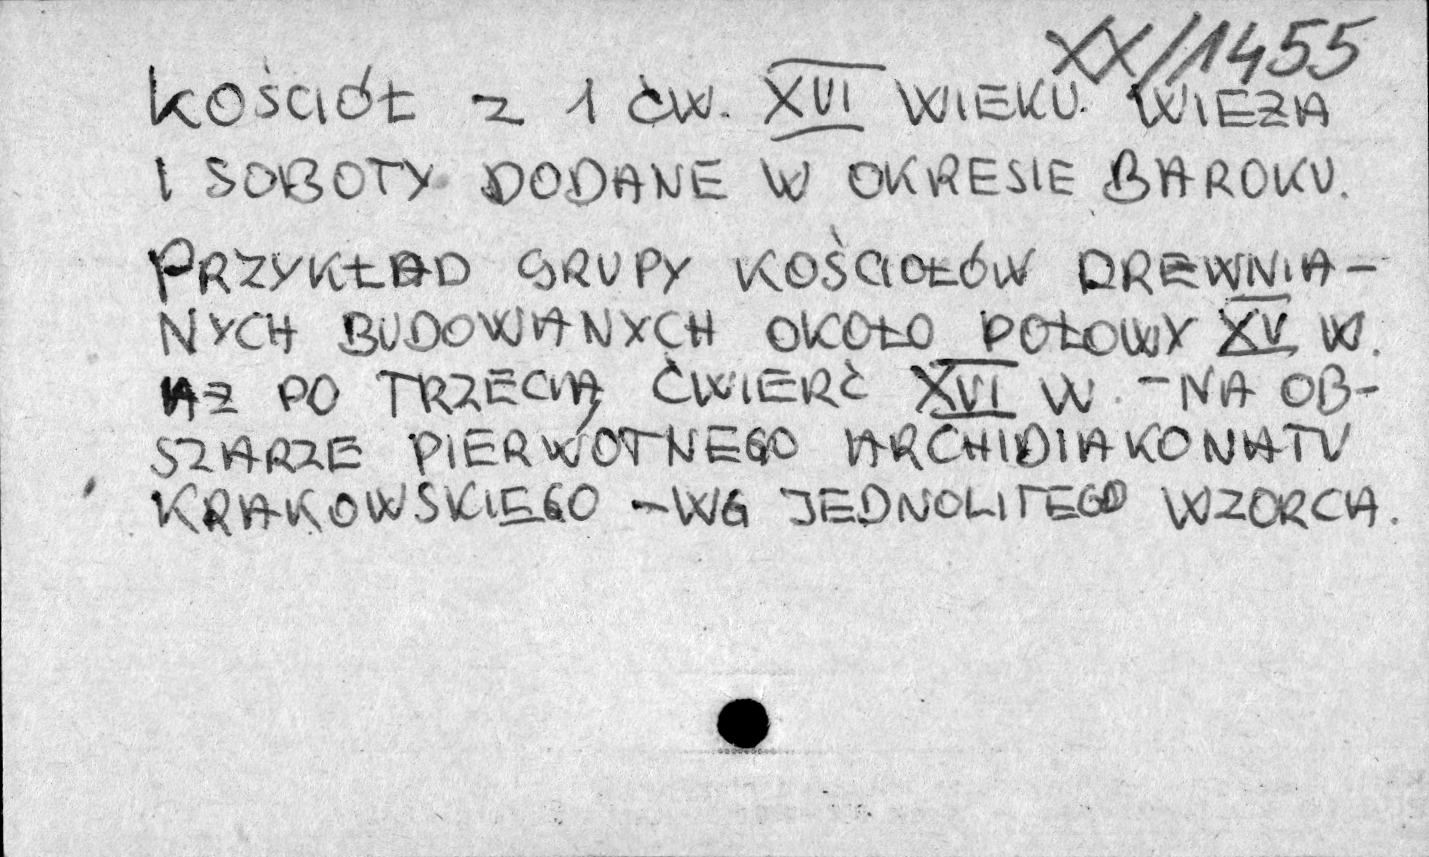 XX/1455
KOŚCIÓŁ Z 1 ĆW. XVI WIEKU. WIEŻA
I SOBOTY DODANE W OKRESIE BAROKU.
PRZYKŁAD GRUPY KOŚCIOŁÓW DREWNIA-
NYCH BUDOWANYCH OKOŁO POŁOWY XV W.
AŻ PO TRZECIĄ ĆWIERĆ XVI W. - NA OB-
SZARZE PIERWOTNEGO ARCHIDIAKONATU
KRAKOWSKIEGO - WG JEDNOLITEGO WZORCA.